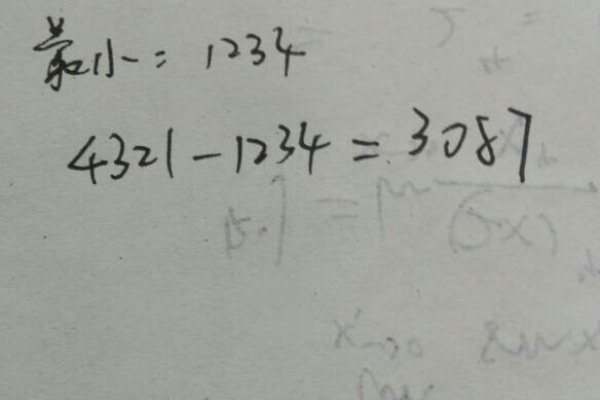 最小: 1234
4321-1234=3087